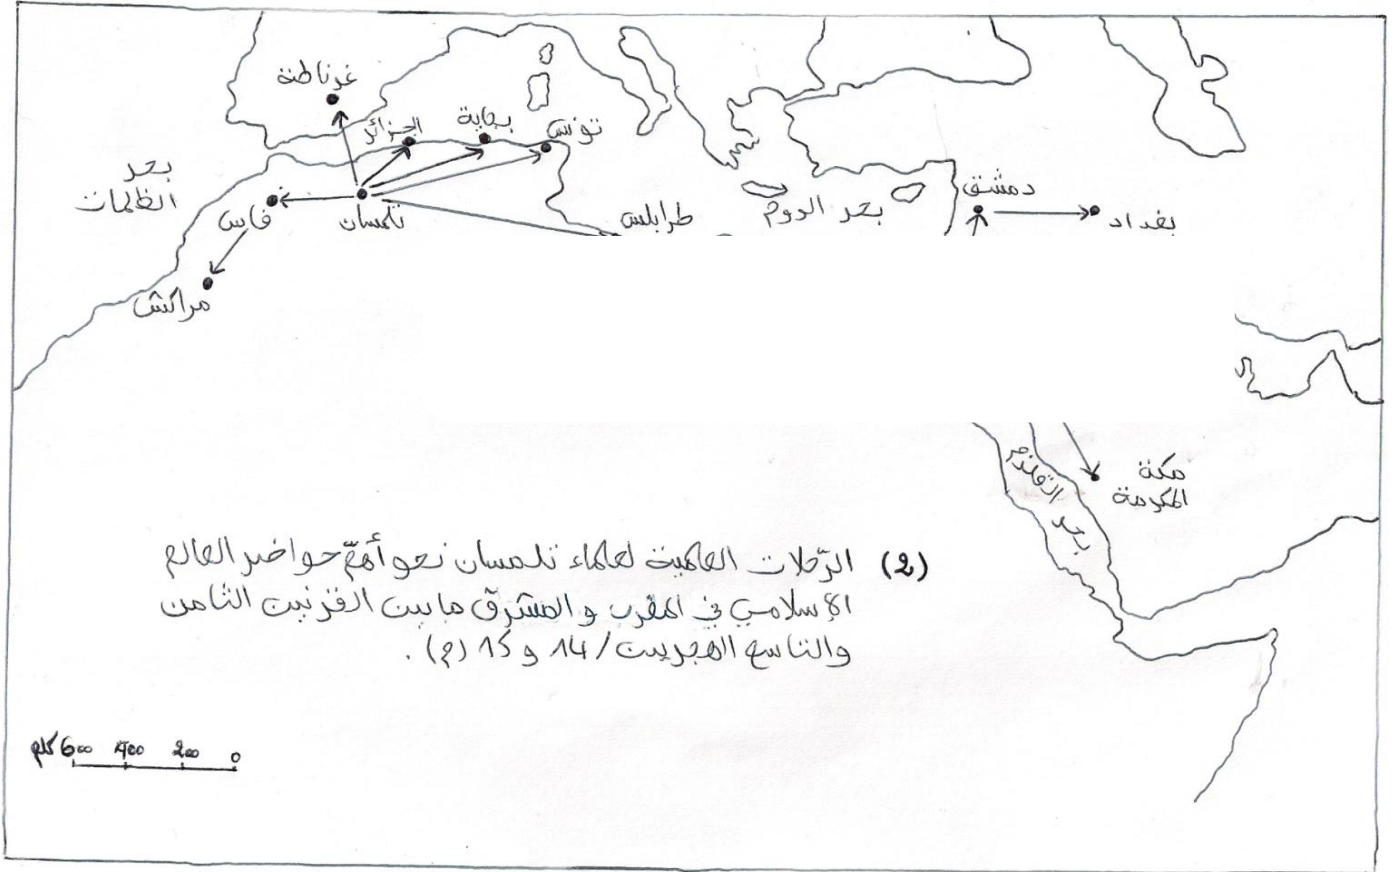 غرناطة
الجزائر
بجاية
تونس
بحر
الظلمات
فاس
تلمسان
طرابلس
بحر الروم
دمشق
بغداد
مراكش
مكة
المكرمة
بحر القلزم
(2) الرّحلات العلمية لعلماء تلمسان نحو أهمّ حواضر العالم
الإسلامي في المغرب والمشرق ما بين القرنين الثامن
والتاسع الهجريين / 14 و 15 (م).
600 كلم 400 200 0